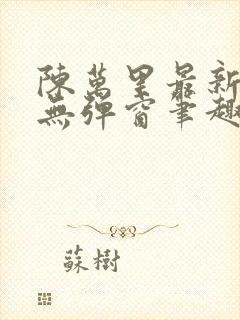 陳萬里最新
無彈窗筆趣
蘇樹